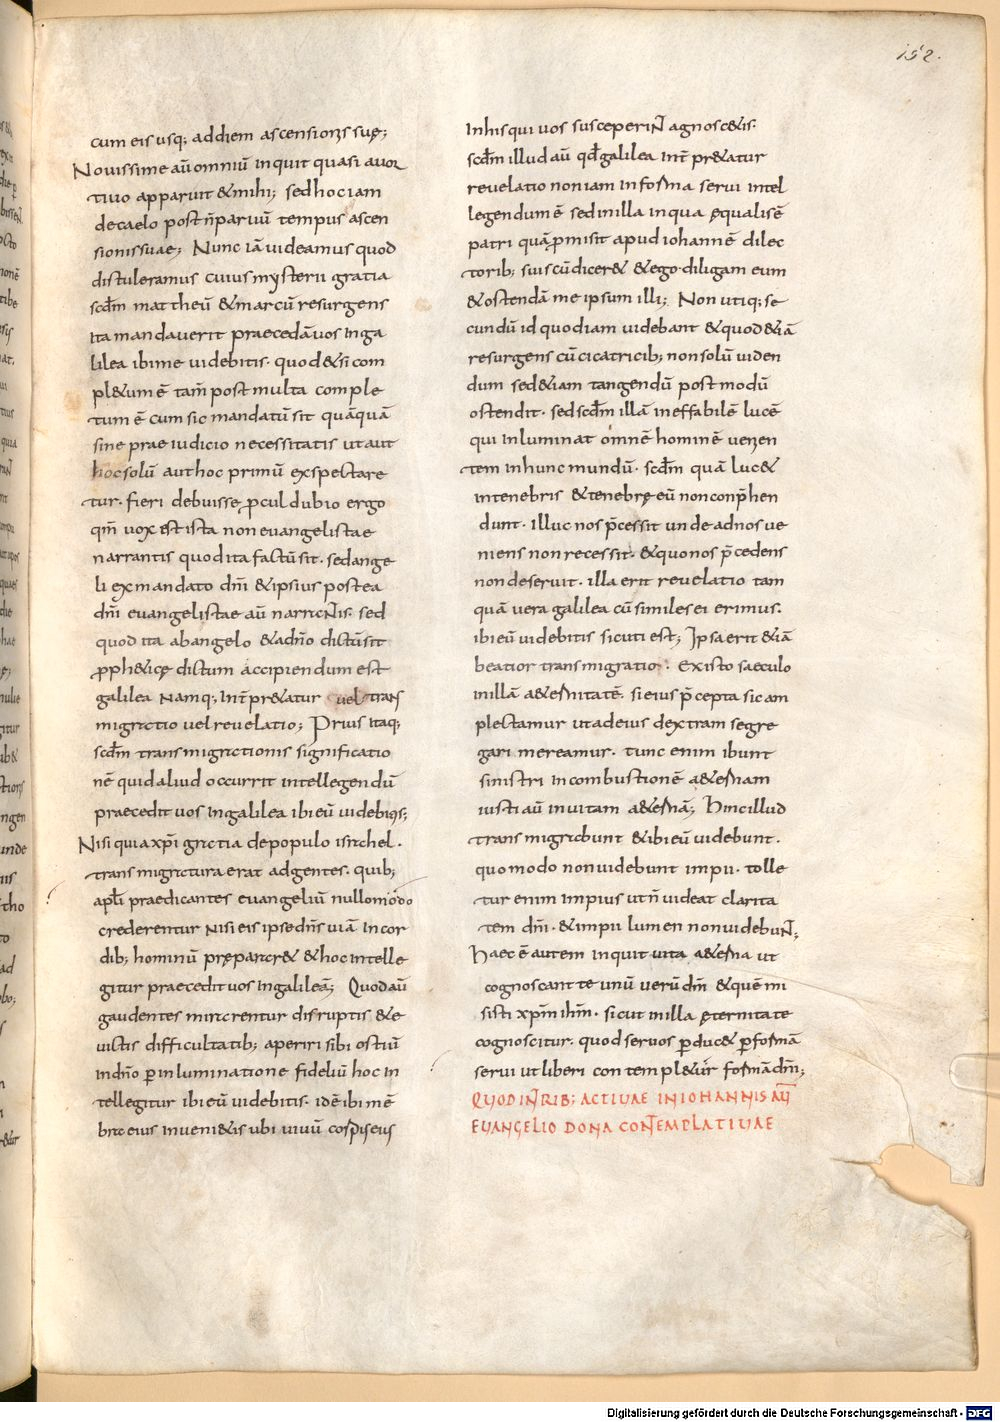 152.
cum eis usq; ad diem ascensionis suę;
Novissime aū omniū inquit quasi avor
tiuo apparuit & mihi; sed hoc iam
de caelo post ñ parvū tempus ascen
sionis suae; Nunc iā videamus quod
distuleramus cuius mysterii gratia
scdm̄ mattheū & marcū resurgens
ita mandaverit praecedā vos in ga
lilea ibi me videbitis. quod & si com
pl&um ē tam̄ post multa comple
tum ē cum sic mandatū sit quāquā
sine praeiudicio necessitatis ut aut
hoc solū aut hoc primū exspectare
tur. fieri debuisse, ꝓcul dubio ergo
qm̄ vox est ista non evangelistae
narrantis quod ita factū sit. sed ange
li ex mandato dnī & ipsius postea
dnī evangelistae aū narrantis. sed
quod ita ab angelo & a dnō dictū sit
ꝓph&icę dictum accipiendum est
galilea namq; int̄pr&atur vel trans
migratio vel revelatio; Prius itaq;
scdm̄ transmigrationis significatio
nē quid aliud occurrit intellegendū
praecedit vos in galilea ibi eū videbitis;
Nisi quia xpī gratia de populo israhel.
transmigratura erat ad gentes. quib;
apłi praedicantes evangeliū nullo modo
crederentur nisi eis ipse dn̄s viā in cor
dib; hominū pręparar& & hoc intelle
gitur praecedit vos in galileā; Quod aū
gaudentes mirarentur disruptis & e
victis difficultatib; aperiri sibi ostiū
in dnō ꝑ inluminatione fideliū hoc in
tellegitur ibi eū videbitis. idē ibi mē
bra eius inveni&is ubi vivū corpus eius
In his qui vos susceperiÑ agnosc&is.
scdm̄ illud aū qđ galilea int̄pr&atur
revelatio non iam in forma servi intel
legendum ē sed in illa in qua ęqualis ē
patri quā ꝓmisit apud iohannē dilec
torib; suis cū dicer& & ego diligam eum
& ostendā me ipsum illi; Non utiq; se
cundū id quod iam videbant & quod &iā
resurgens cū cicatricib; non solū viden
dum sed &iam tangendū postmodū
ostendit. sed scdm̄ illā ineffabilē lucē
qui inluminat omnē hominē venien
tem in hunc mundū. scdm̄ quā luc&
in tenebris & tenebrę eū non conp̄hen
dunt. illuc nos p̄cessit unde ad nos ve
niens non recessit. & quo nos p̄cedens
non deseruit. illa erit revelatio tam
quā vera galilea cū similes ei erimus.
ibi eū videbitis sicuti est; Ipsa erit &iā
beatior transmigratio. ex isto saeculo
in illā a&ernitatē. si eius p̄cepta sic am
plectamur ut ad eius dextram segre
gari mereamur. tunc enim ibunt
sinistri in combustionē a&ernam
iusti aū in vitam a&ernā; Hinc illud
transmigrabunt & ibi eū videbunt.
quomodo non videbunt impii. tolle
tur enim impius ut ñ videat clarita
tem dnī. & impii lumen non videbuÑ;
Haec ē autem inquit vita a&erna ut
cognoscant te unū verū dm̄ & quē mi
sisti xpm̄ ihm̄. sicut in illa ęternitate
cognoscitur. quo servos ꝑduc& ꝑ formā
servi ut liberi contempl&ur formā dnī;
QUOD IN TRIB; ACTIVAE IN IOHANNIS AŪ
EVANGELIO DONA CONTEMPLATIVAE
Digitalisierung gefördert durch die Deutsche Forschungsgemeinschaft - DFG